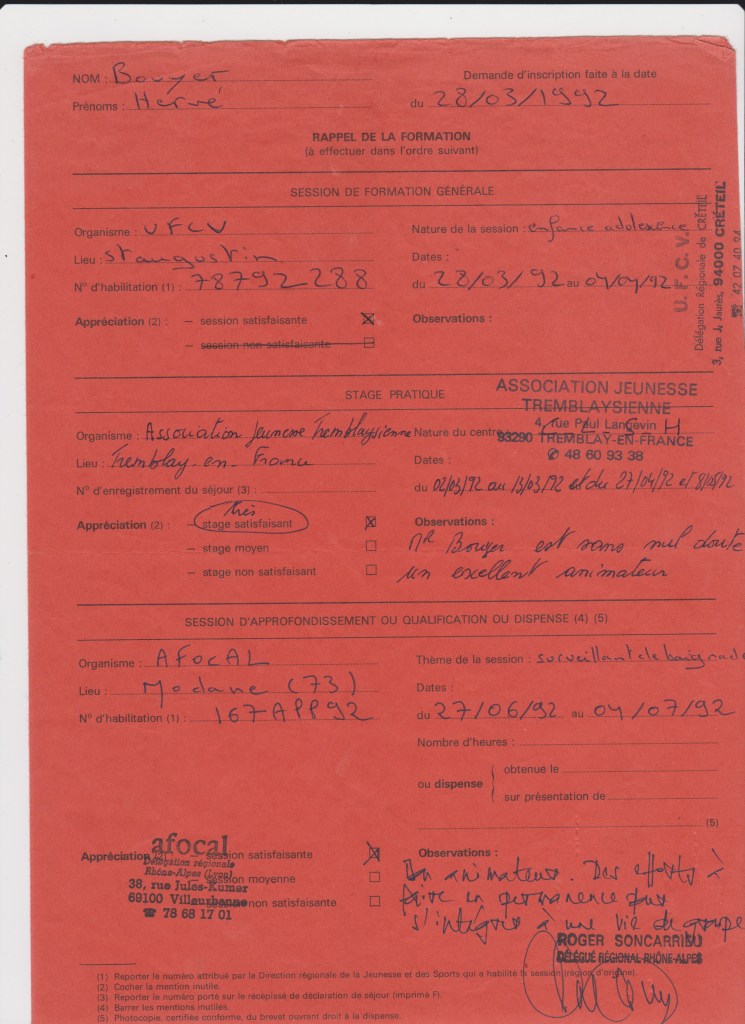 NOM : Bouyer
Demande d'inscription faite à la date
Prénoms : Hervé
du 28/03/1992
RAPPEL DE LA FORMATION
(à effectuer dans l'ordre suivant)
SESSION DE FORMATION GÉNÉRALE
Organisme : UFCV
Nature de la session : enfance adolescence
Lieu : St augustin
Dates :
N° d'habilitation (1) : 78792288
du 28/03/92 au 04/04/92
Appréciation (2) : – session satisfaisante
Observations :
– session non satisfaisante
U. F. C. V.
Délégation Régionale de CRÉTEIL
3, rue J. Jaurès, 94000 CRÉTEIL
☎ 42 07 40 24
STAGE PRATIQUE
ASSOCIATION JEUNESSE
TREMBLAYSIENNE
4, rue Paul Langevin
93290 TREMBLAY-EN-FRANCE
✆ 48 60 93 38
Organisme : Association Jeunesse Tremblaysienne
Nature du centre : C L S H
Lieu : Tremblay-en-France
Dates :
N° d'enregistrement du séjour (3) :
du 02/03/92 au 13/03/92 et du 27/04/92 et 8/05/92
très
Appréciation (2) : – stage satisfaisant
Observations :
– stage moyen
Mr Bouyer est sans nul doute
– stage non satisfaisant
un excellent animateur
SESSION D'APPROFONDISSEMENT OU QUALIFICATION OU DISPENSE (4) (5)
Organisme : AFOCAL
Thème de la session : surveillant de baignade
Lieu : Modane (73)
Dates :
N° d'habilitation (1) : 167APP92
du 27/06/92 au 04/07/92
Nombre d'heures :
ou dispense
obtenue le
sur présentation de
(5)
afocal
Délégation régionale
Rhône-Alpes (Lyon)
38, rue Jules-Kumer
69100 Villeurbanne
☎ 78 68 17 01
Appréciation (2) : – session satisfaisante
– session moyenne
– session non satisfaisante
Observations :
Bon animateur. Des efforts à
faire en permanence pour
s'intégrer à une vie de groupe
ROGER SONCARRIEU
DÉLÉGUÉ RÉGIONAL RHÔNE-ALPES
(1) Reporter le numéro attribué par la Direction régionale de la Jeunesse et des Sports qui a habilité la session (région d'origine).
(2) Cocher la mention inutile.
(3) Reporter le numéro porté sur le récépissé de déclaration de séjour (imprimé F).
(4) Barrer les mentions inutiles.
(5) Photocopie, certifiée conforme, du brevet ouvrant droit à la dispense.